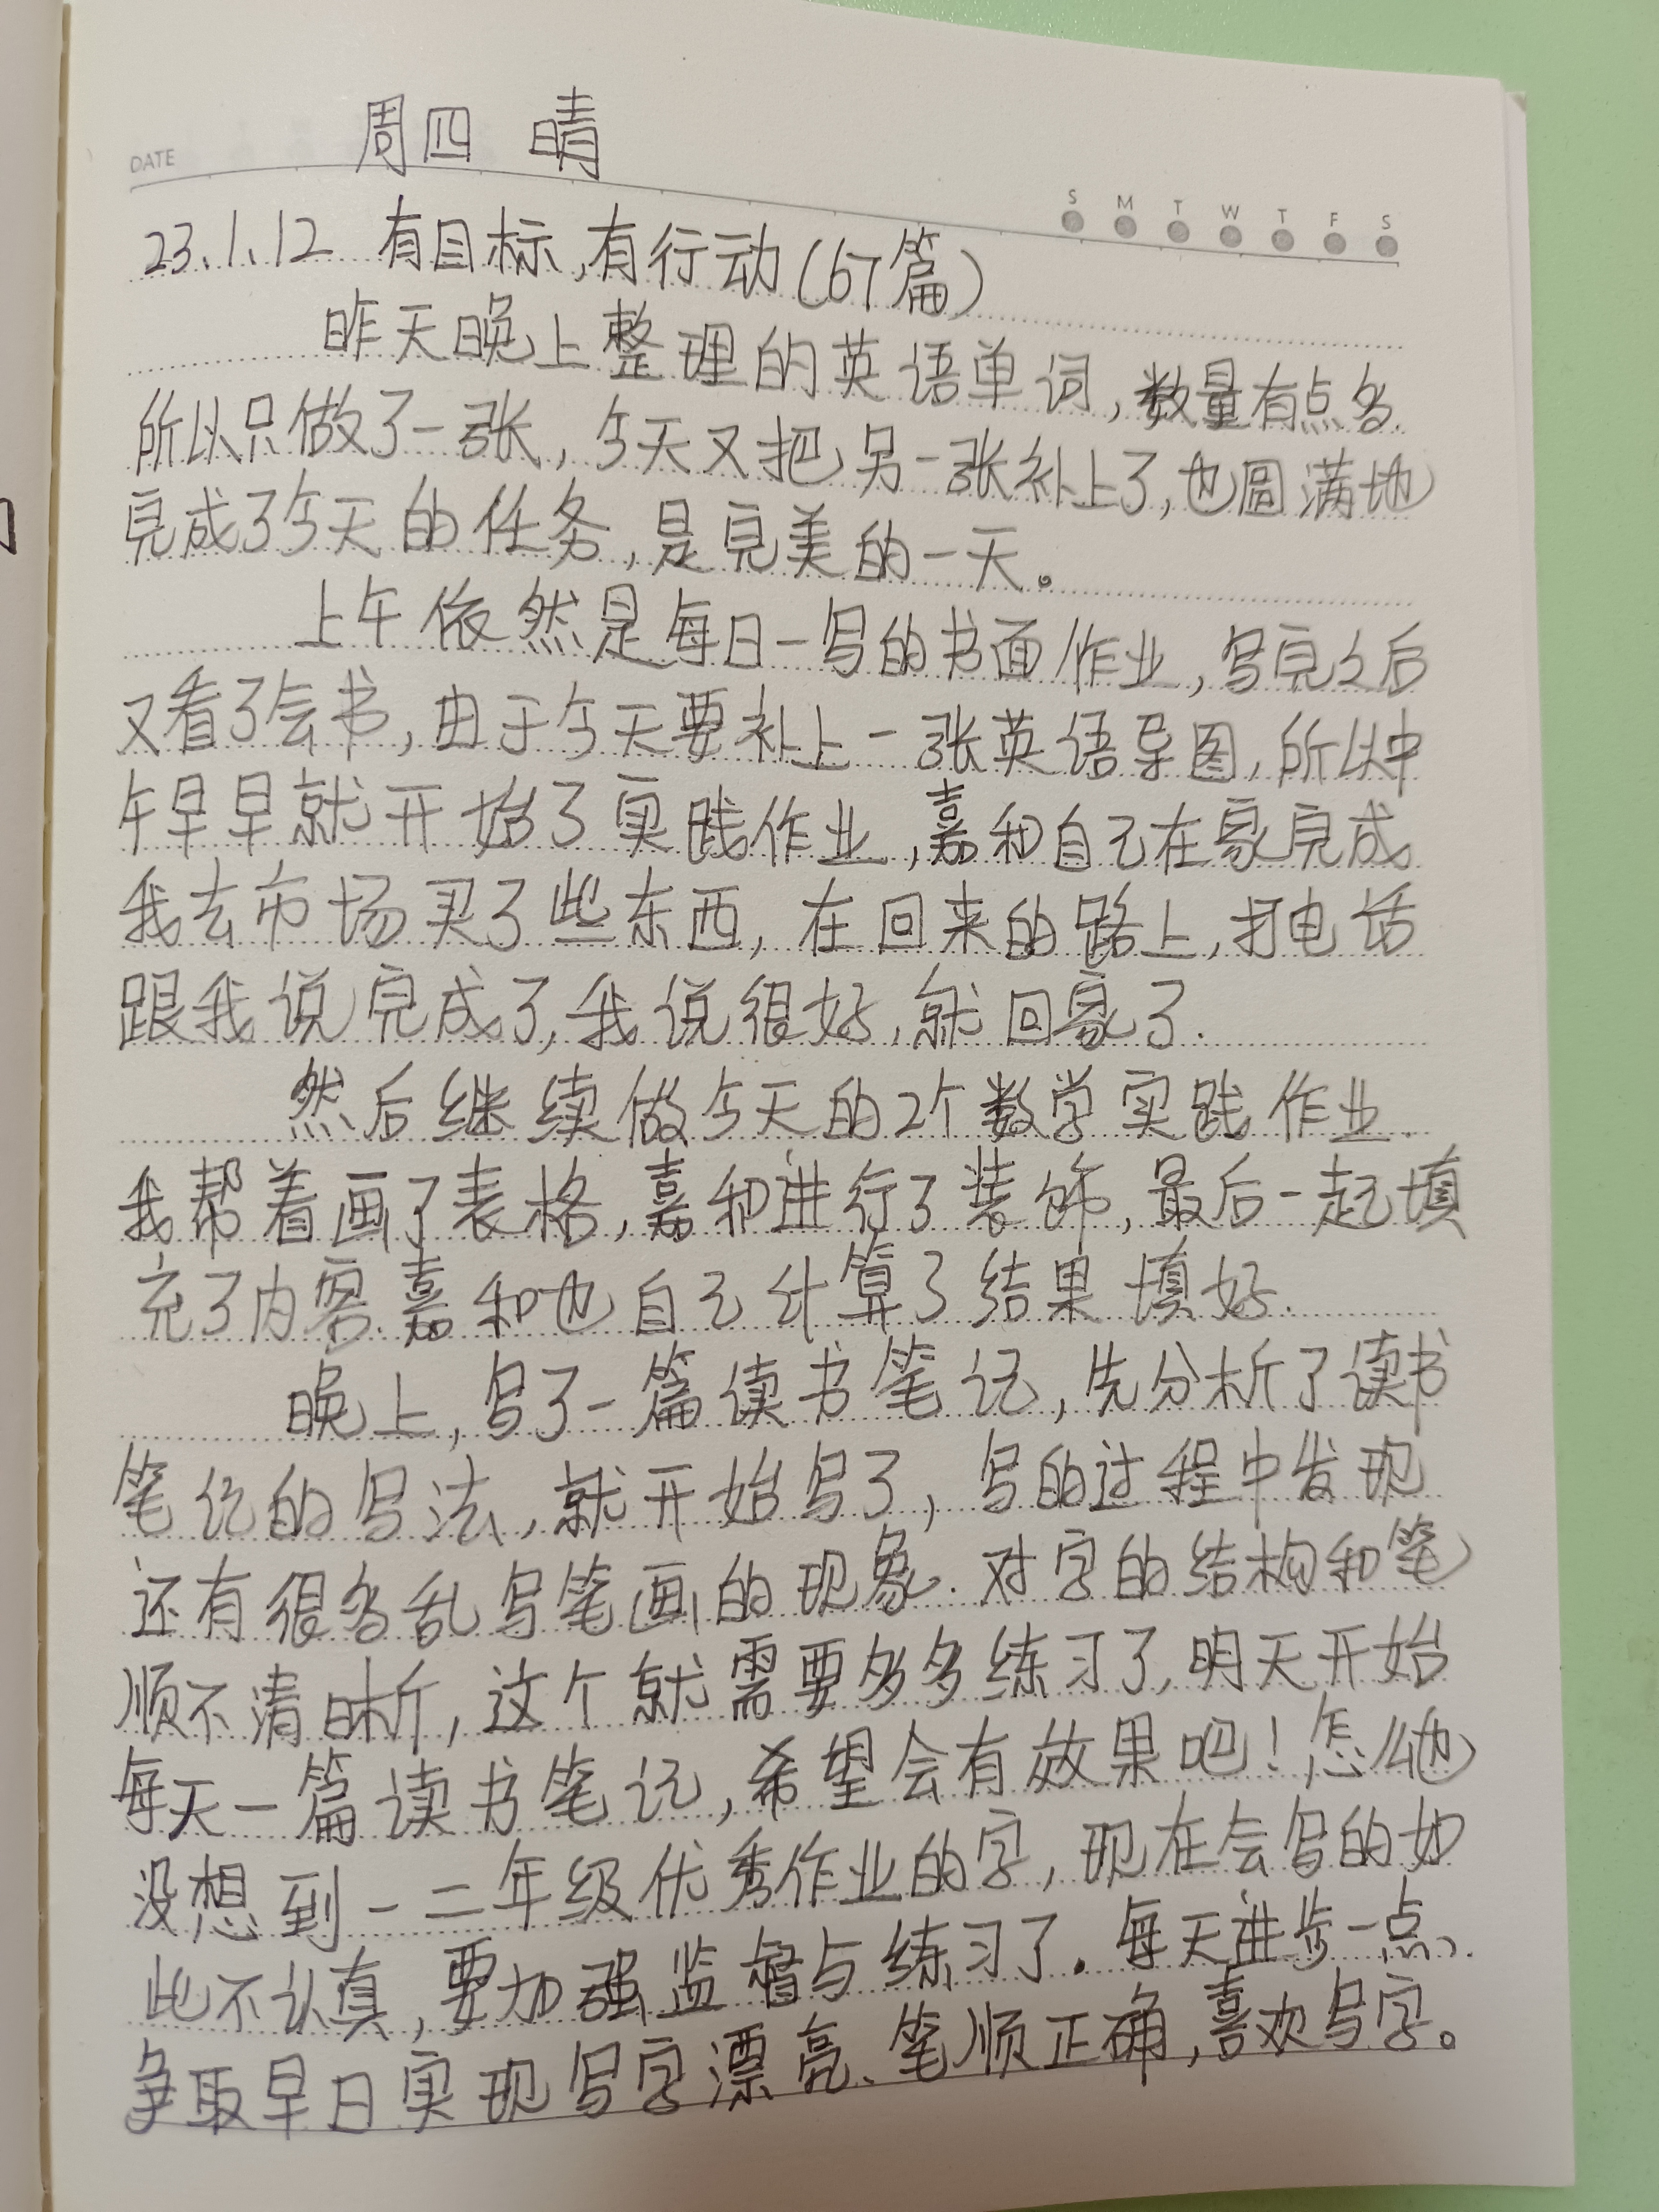 DATE
周四 晴
S M T W T F S
23.1.12 有目标,有行动(67篇)
昨天晚上整理的英语单词,数量有点多.
所以只做了一张,今天又把另一张补上了,也圆满地
完成了今天的任务,是完美的一天。
上午依然是每日一写的书面作业,写完之后
又看了会书,由于今天要补上一张英语导图,所以中
午早早就开始了实践作业,嘉和自己在家完成
我去市场买了些东西,在回来的路上,打电话
跟我说完成了,我说很好,就回家了.
然后继续做今天的2个数学实践作业.
我帮着画了表格,嘉和进行了装饰,最后一起填
充了内容.嘉和也自己计算了结果填好.
晚上,写了一篇读书笔记,先分析了读书
笔记的写法,就开始写了,写的过程中发现
还有很多乱写笔画的现象.对字的结构和笔
顺不清晰,这个就需要多多练习了,明天开始
每天一篇读书笔记,希望会有效果吧!怎么也
没想到一二年级优秀作业的字,现在会写的如
此不认真,要加强监督与练习了.每天进步一点、
争取早日实现写字漂亮、笔顺正确,喜欢写字。